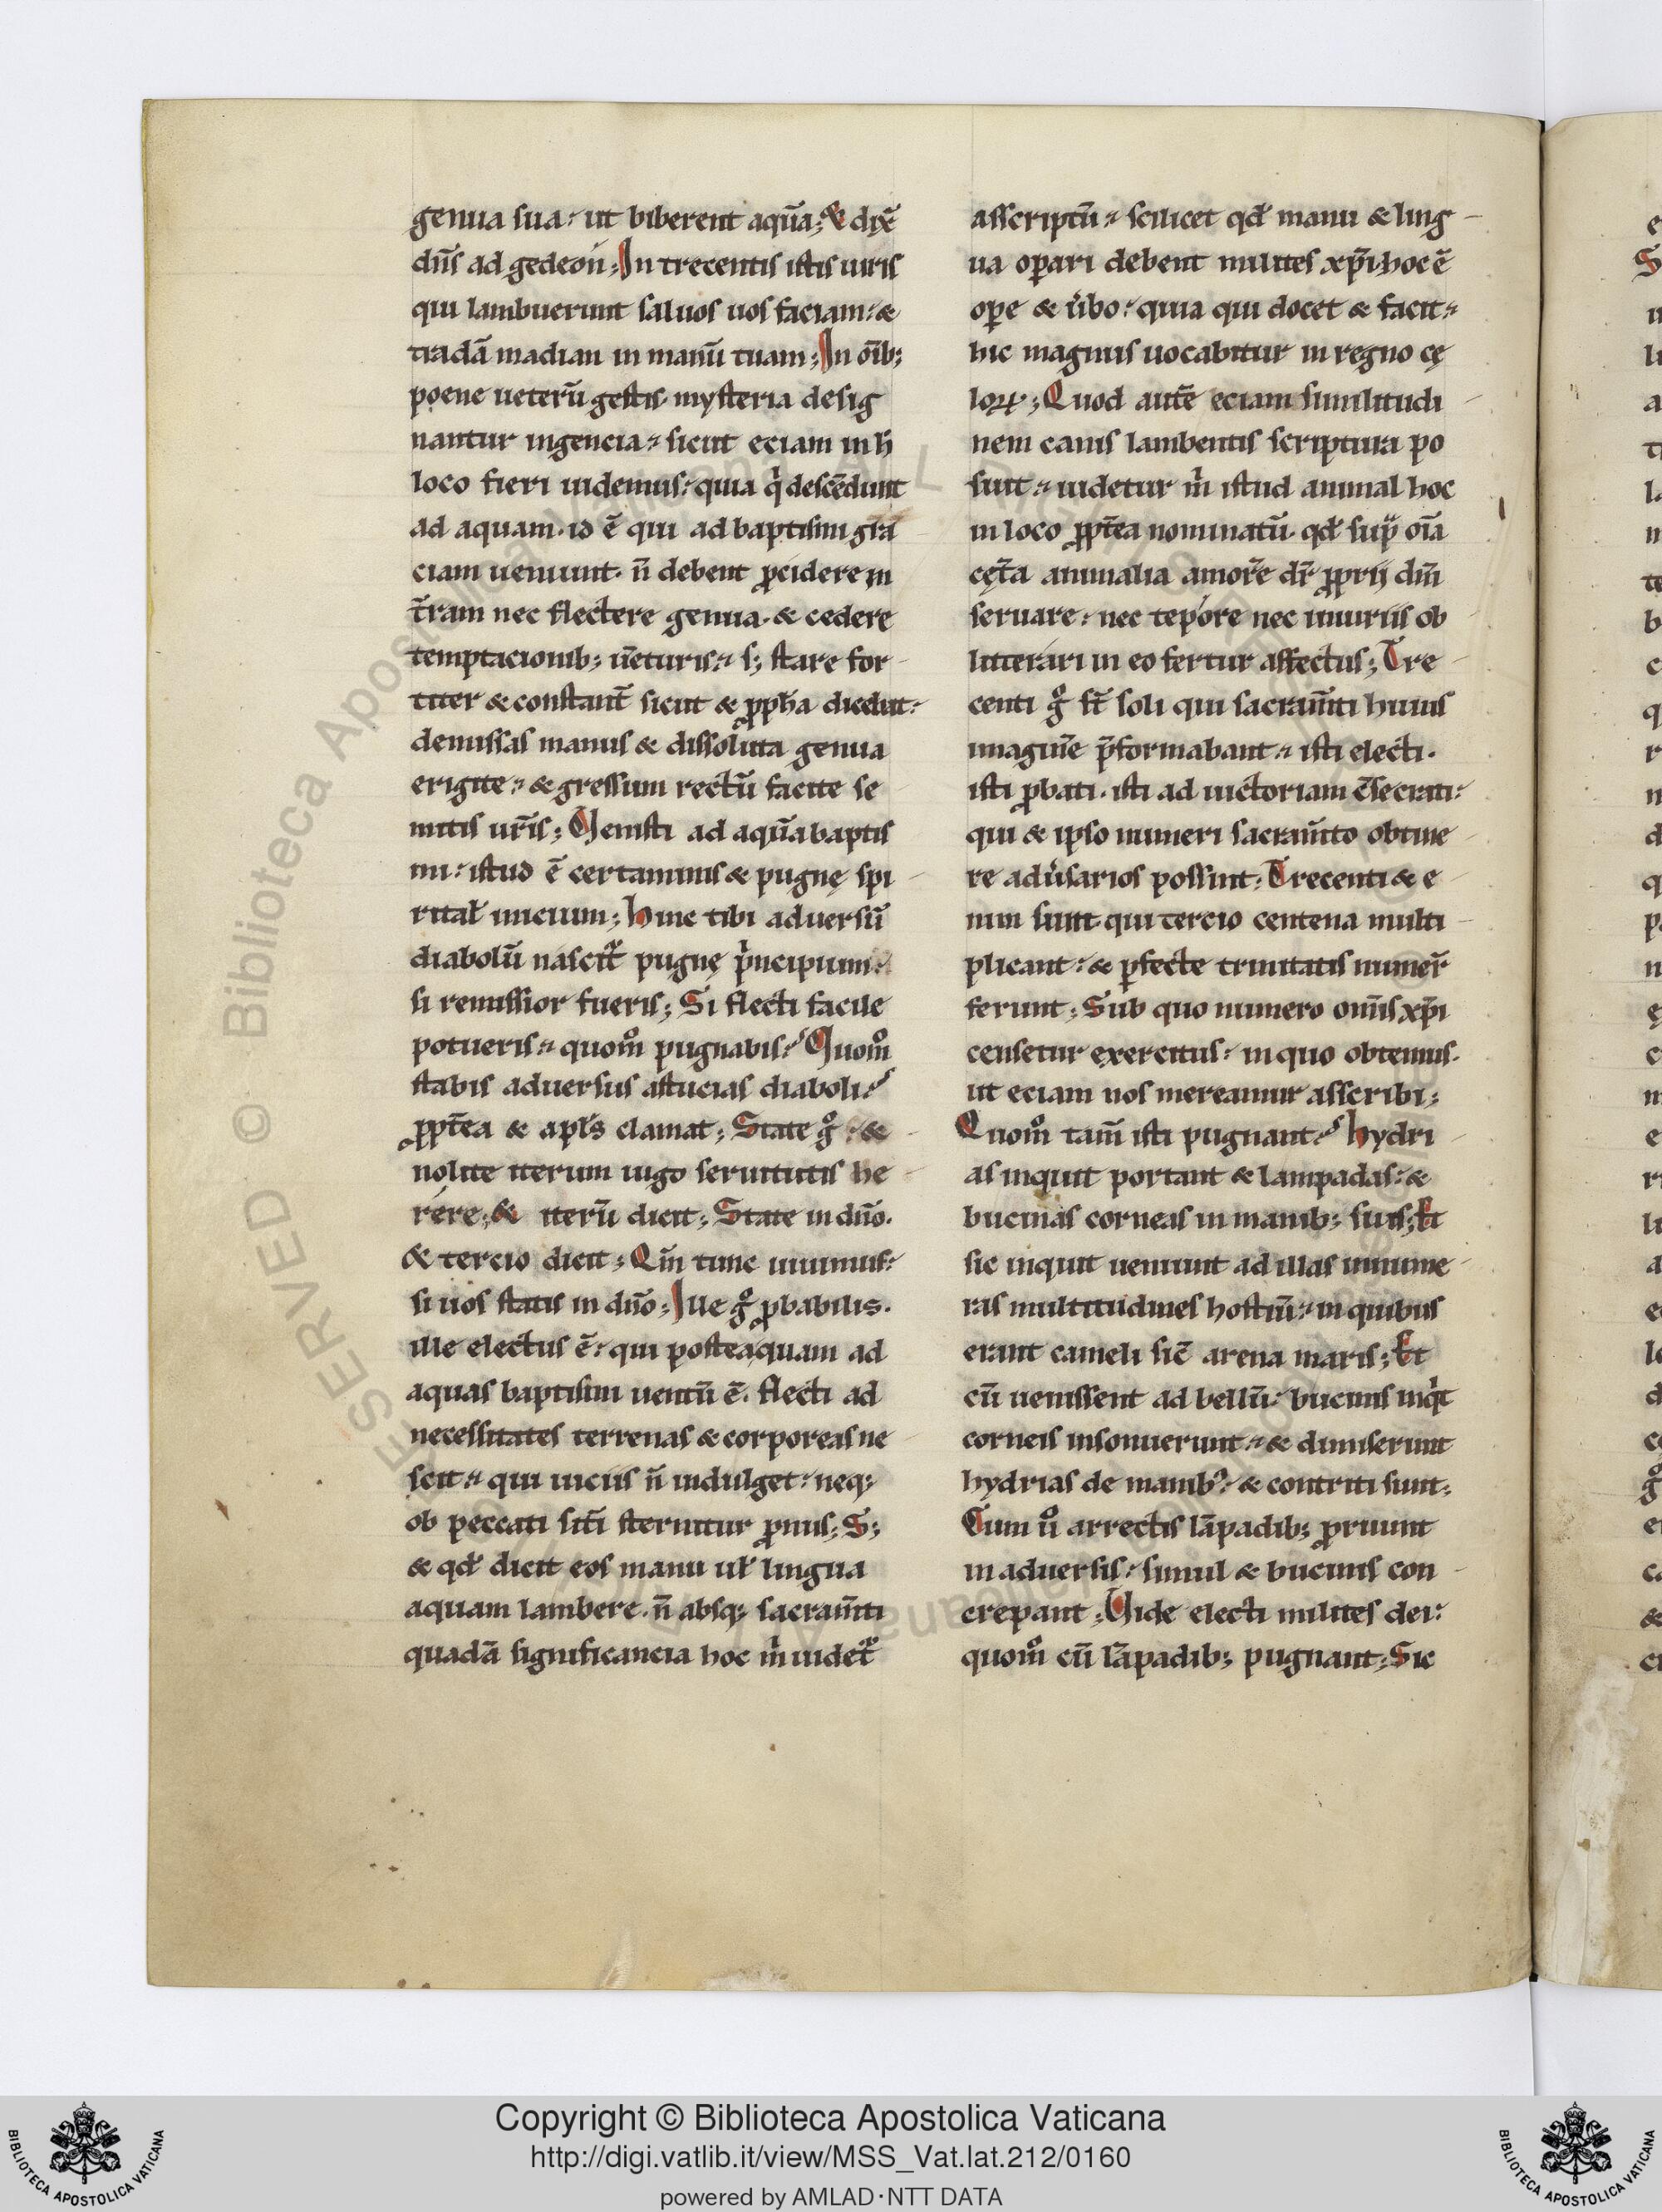 genua sua. ut biberent aquā; & dix̄
dn̄s ad gedeon; In trecentis istis uiris
qui lambuerunt saluos uos faciam. &
tradā madian in manū tuam; In oīb;
poene ueterū gestis mysteria desig
nantur ingencia. sicut eciam in h̄
loco fieri uidemus. quia q̇ descēdunt
ad aquam. id ē qui ad baptismi gr̄a
ciam ueniunt. n̄ debent ꝓcidere in
t̄ram nec flectere genua. & cedere
temptacionib; ūeturis. s; stare for
titer & constant̄ sicut & ꝓph̄a
demissas manus & dissoluta genua
erigite. & gressum rectū facite se
mitis ur̄is; Venisti ad aquā baptis
mi. istud ē certaminis & pugnę spi
ritał inicium; hinc tibi aduersū
diabolū nascit᷑ pugnę pͥncipium.
si remissior fueris; Si flecti facile
potueris. quom̊ pugnabis? Quom̊
stabis aduersus astucias diaboli?
ꝓpt̄ea & apl̄s clamat; State g̊. &
nolite iterum iugo seruitutis he
rere; & iterū dicit; State in dn̄o.
& tercio dicit; Qm̄ tunc uiuimus.
si uos statis in dn̄o; Ille g̊ ꝓbabilis.
ille electus ē. qui posteaquam ad
aquas baptismi uentū ē. flecti ad
necessitates terrenas & corporeas ne
scit. qui uiciis n̄ indulget. neq;
ob peccati sitī sternitur ꝓnus; S;
& qđ dicit eos manu uł lingua
aquam lambere. n̄ absq; sacram̄ti
quadā significancia hoc m̍ uidet᷑
asscriptū. scilicet qđ manu & ling
ua oꝑari debent milites xp̄i. hoc ē
oꝑe & u̍bo. quia qui docet & facit.
hic magnus uocabitur in regno cę
loꝝ; Quod autē eciam similitudi
nem canis lambentis scriptura po
suit. uidetur m̍ istud animal hoc
in loco ꝓpt̄ea nominatū. qđ sup̄ oīa
cęt̄a animalia amorē dr̄ ꝓprij dn̄i
seruare. nec tepore nec iniuriis ob
litterari in eo fertur affectus; Tre
centi g̊ st̄ soli qui sacram̄ti huius
imaginē p̄formabant. isti electi.
isti ꝓbati. isti ad uictoriam c̄secrati.
qui & ipso numeri sacram̄to obtine
re adu̍sarios possint; Trecenti & e
nim sunt qui tercio centena multi
plicant. & ꝑfecte trinitatis numer̄
ferunt; Sub quo numero om̄is xp̄i
censetur exercitus. in quo obtemus.
ut eciam nos mereamur asscribi;
Quom̊ tam̄ isti pugnant? hydri
as inquit portant & lampadas. &
bucinas corneas in manib; suis; Et
sic inquit ueniunt ad illas innume
ras multitudines hostiū. in quibus
erant cameli sic̄ arena maris; Et
cū uenissent ad bellū. bucinis inqͥt
corneis insonuerunt. & dimiserunt
hydrias de manibꝰ. & contriti sunt;
Cum u̍o arrectis lāpadib; ꝓruunt
in aduersis. simul & bucinis con
crepant; Vide electi milites dei.
quom̊ cū lāpadib; pugnant; Sic
Copyright © Biblioteca Apostolica Vaticana
http://digi.vatlib.it/view/MSS_Vat.lat.212/0160
powered by AMLAD·NTT DATA
BIBLIOTECA APOSTOLICA VATICANA
BIBLIOTECA APOSTOLICA VATICANA